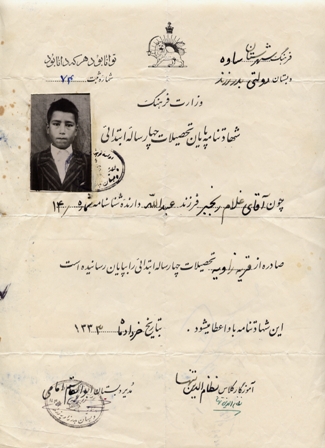 فرهنگ شهرستان ساوه
دبستان دولتی بدرزند
توانا بود هر که دانا بود
شماره ثبت ۷۴
وزارت فرهنگ
شهادتنامه پایان تحصیلات چهار ساله ابتدائی
چون آقای غلام رنجبر فرزند عبدالله دارنده شناسنامه شماره ۱۴
صادره از قریه زاویه تحصیلات چهار ساله ابتدائی را بپایان رسانیده است
این شهادتنامه باو اعطا میشود. بتاریخ خرداد ماه ۱۳۳۴
آموزگار کلاس نظام الدین
مدیر دبستان ابوالقاسم امامی